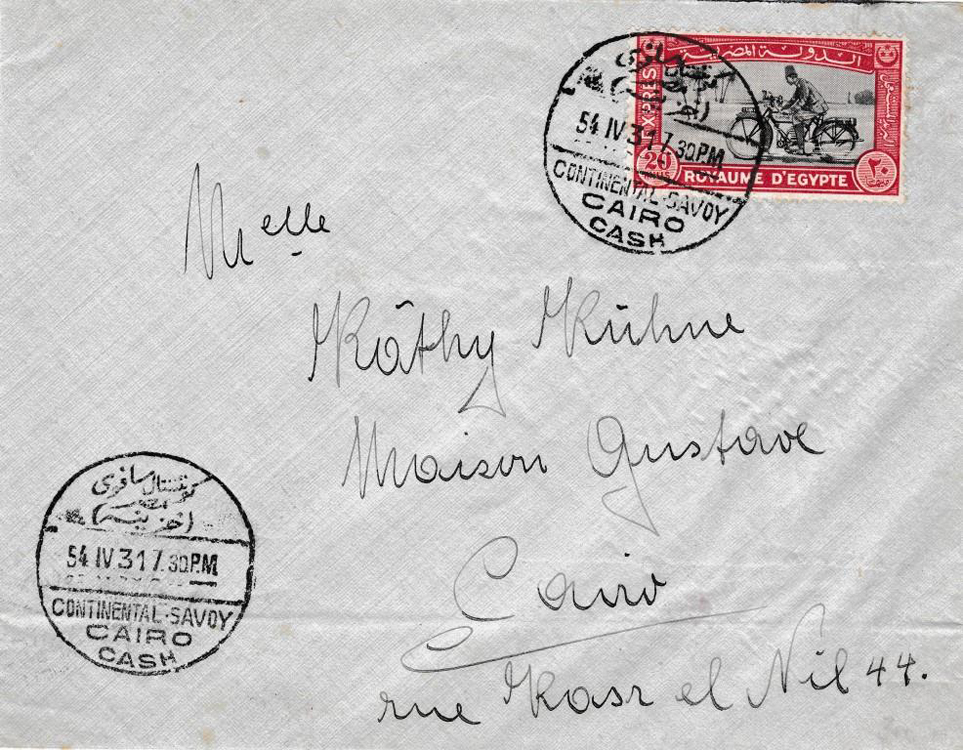 الدولة المصرية
EXPRES
20
٢٠
ROYAUME D'EGYPTE
54 IV 31 7.30 P.M
CONTINENTAL-SAVOY
CAIRO
CASH
Melle
Käthy Kühne
Maison Gustave
Cairo
rue Kasr el Nil 44.
كونتننتال سافوى
(خزينة)
54 IV 31 7.30 P.M
CONTINENTAL-SAVOY
CAIRO
CASH